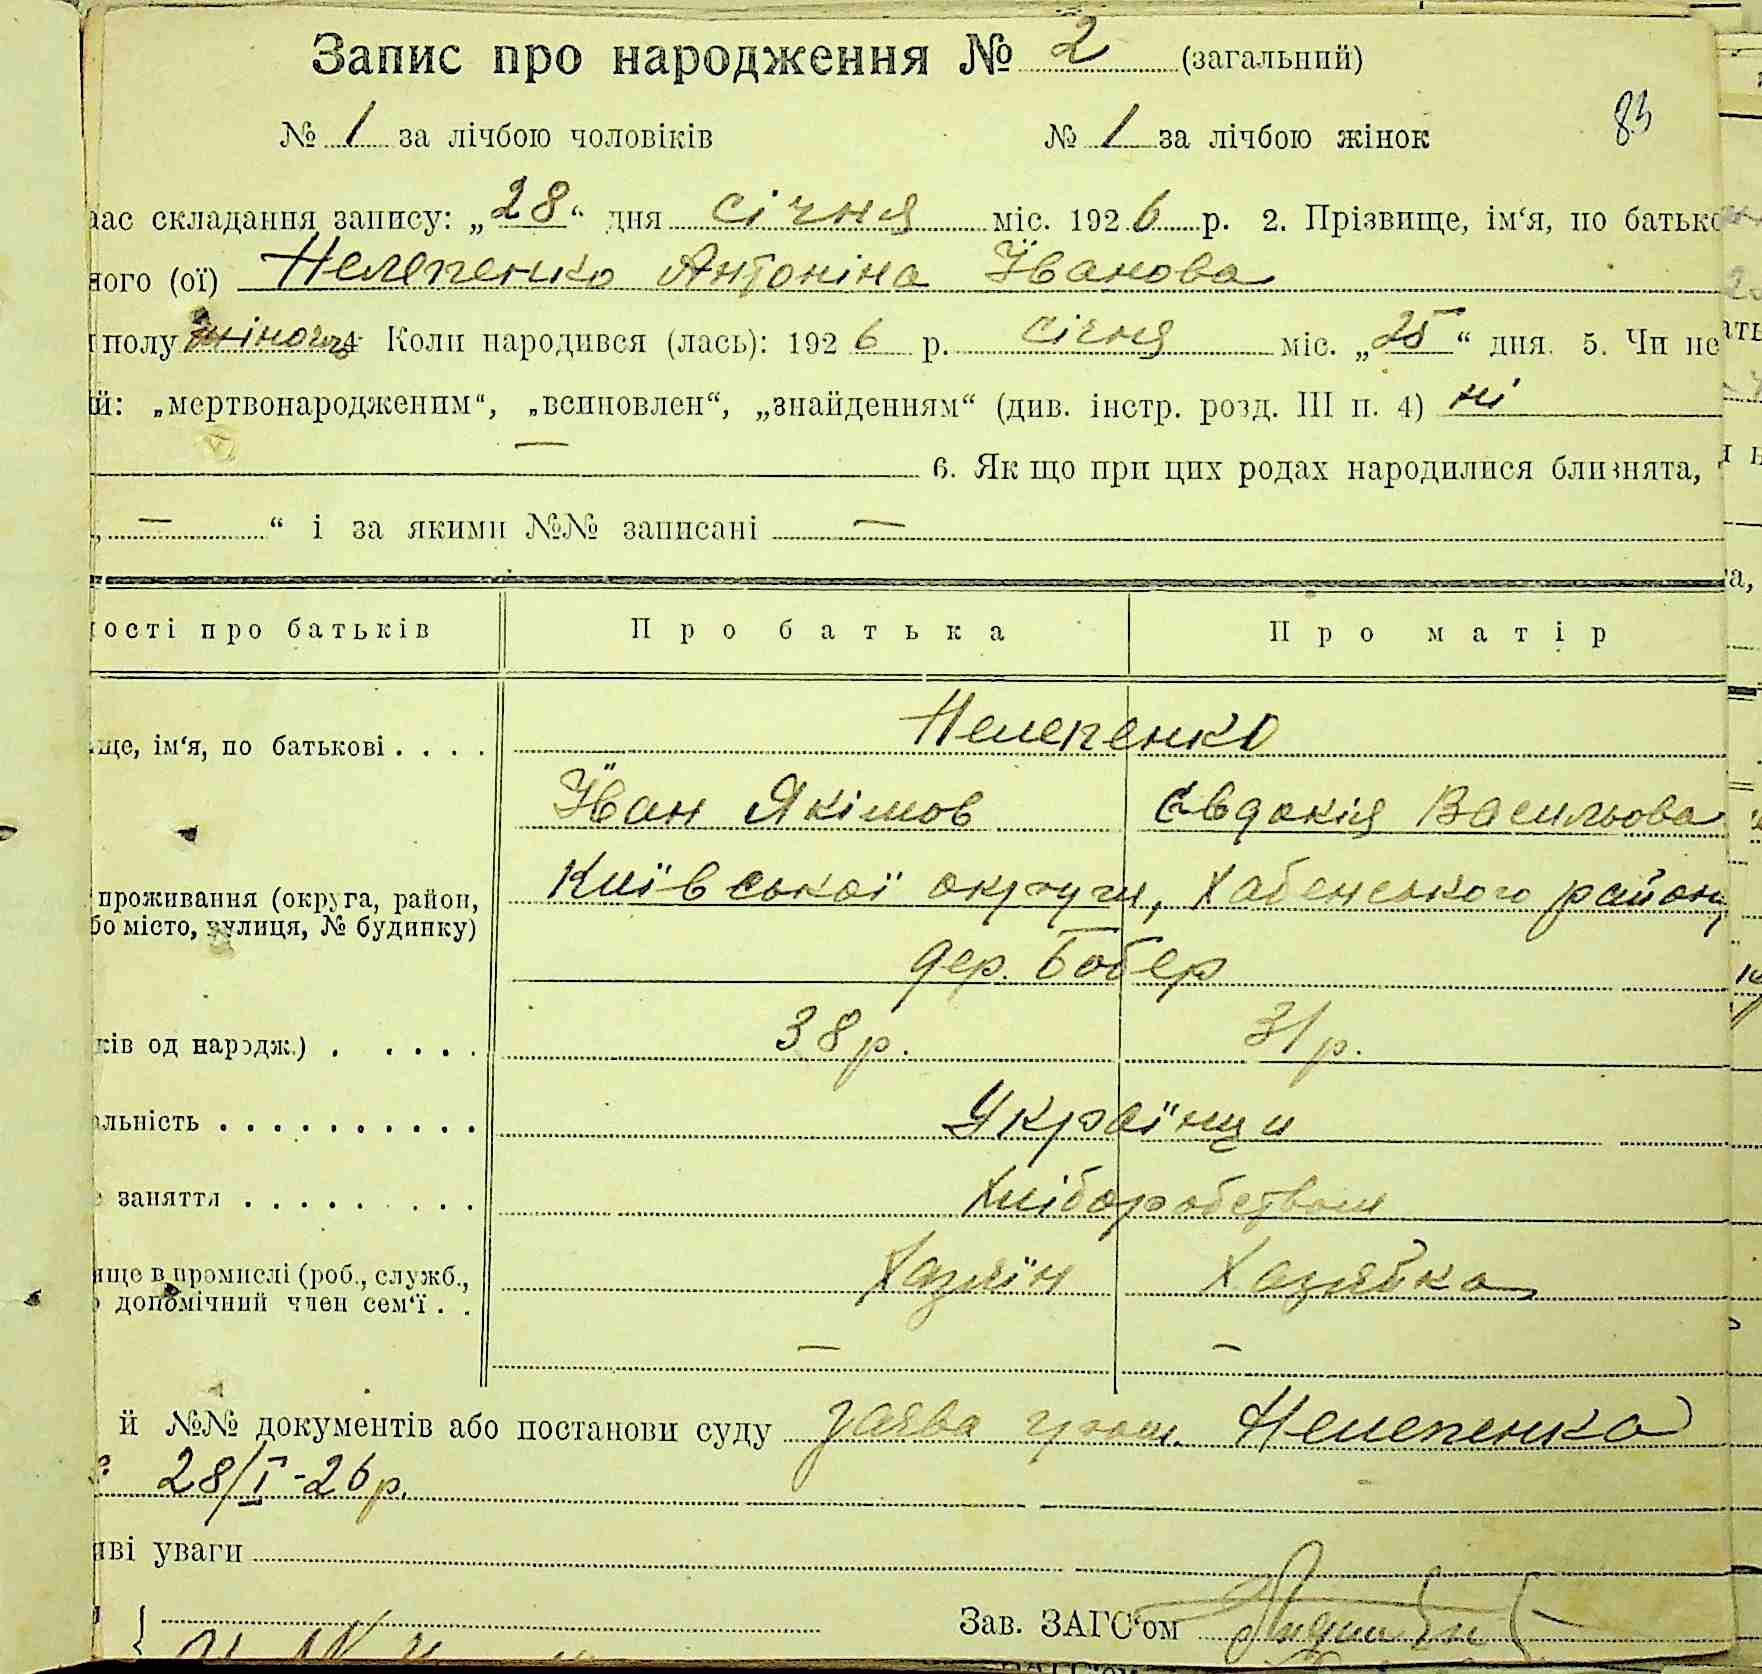 Запис про народження № 2 (загальний)
№ 1 за лічбою чоловіків № 1 за лічбою жінок 83
час складання запису: „28“ дня січня міс. 1926 р. 2. Прізвище, ім‘я, по батько
ного (ої) Нелепенко Антоніна Йванова
полу жіноч. 4 Коли народився (лась): 1926 р. січня міс. „25“ дня. 5. Чи не
й: „мертвонародженим“, „всиновлен“, „знайденням“ (див. інстр. розд. III п. 4) ні
— 6. Як що при цих родах народилися близнята,
„ — “ і за якими №№ записані —
ності про батьків Про батька Про матір
ще, ім‘я, по батькові . . . . Нелепенко
Йван Якімов Євдокія Васильова
проживання (округа, район, Київської округи, Хабенського району
бо місто, вулиця, № будинку)
дер. Бобер
ків од народж.) . . . . . 38 р. 31 р.
альність . . . . . . . . . . Українци
заняття . . . . . . . . Хліборобством
ище в промислі (роб., служб., Хазяїн Хазяйка
допомічний член сем‘ї . .
— —
й №№ документів або постанови суду заява гром. Нелепенка
28/I-26 р.
иві уваги
Зав. ЗАГС‘ом